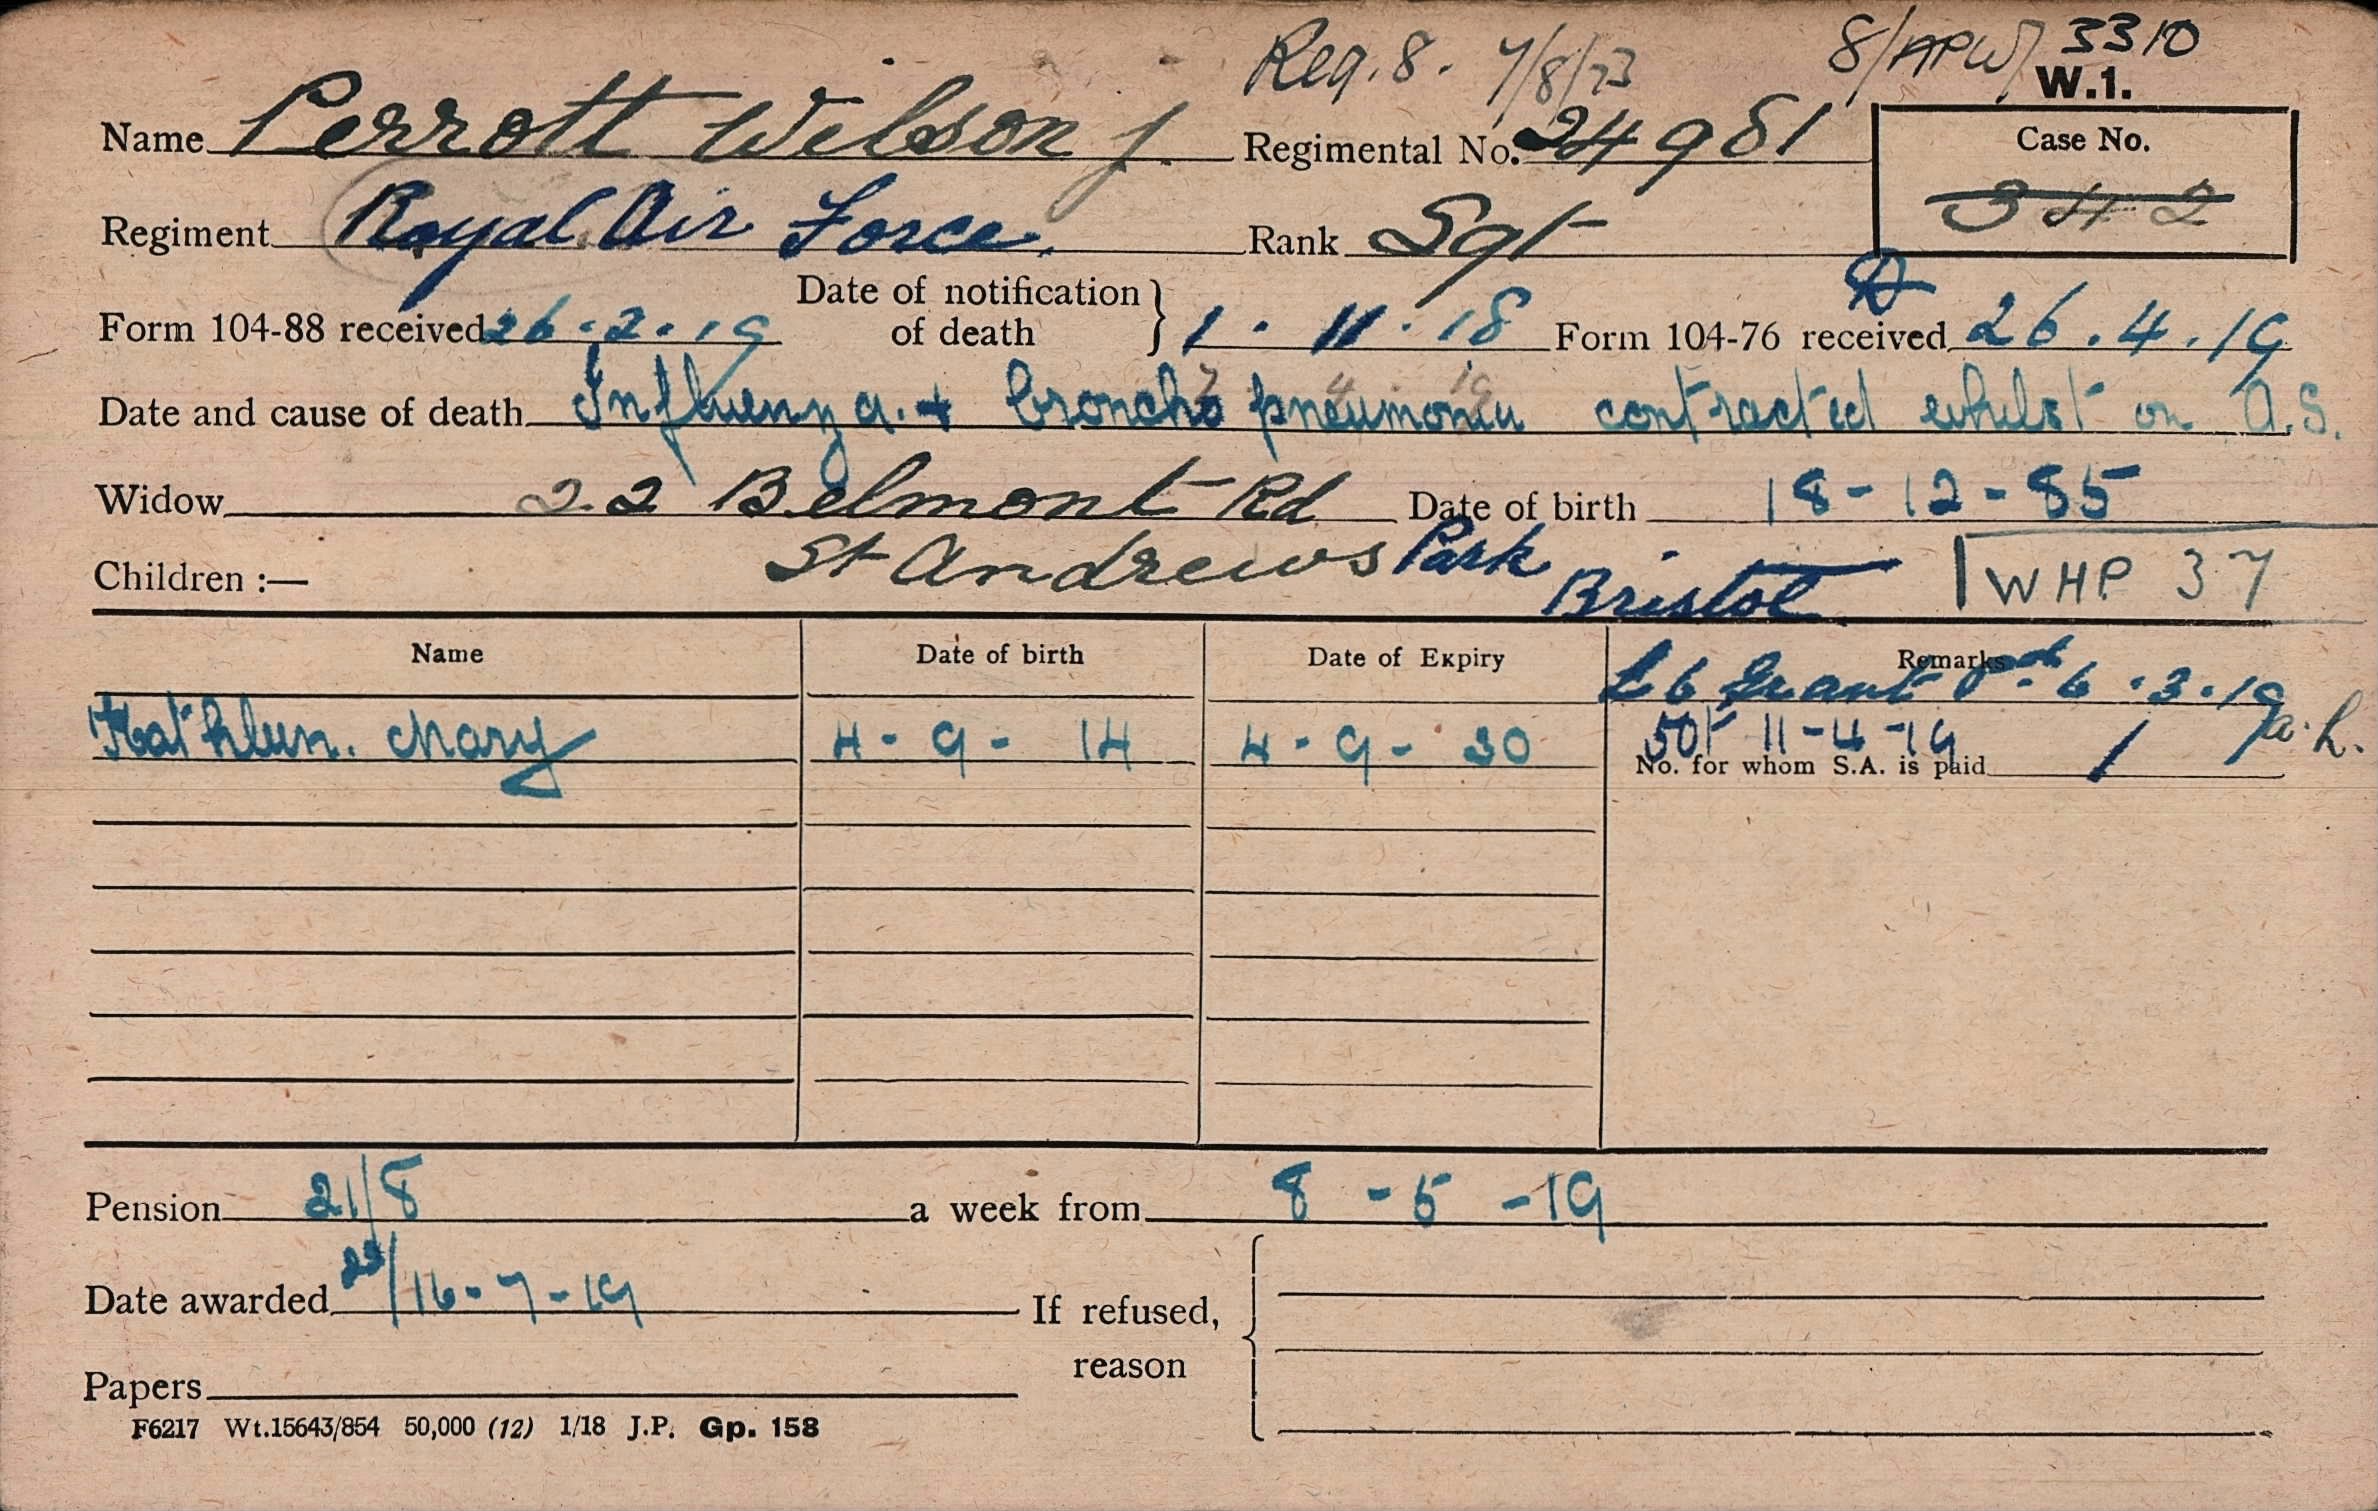 Reg. 8. 7/8/23 8/APW/ 3310
W.1.
Name Perrott Wilson J. Regimental No. 24981 Case No.
342
Regiment Royal Air Force. Rank Sgt
Form 104-88 received 26.2.19 Date of notification of death } 1.11.18 Form 104-76 received 26.4.19
7 4 19
Date and cause of death Influenza. + broncho pneumonia contracted whilst on A.S.
Widow 22 Belmont Rd Date of birth 18-12-85
Children :— St Andrews Park Bristol WHP 37
Name Date of birth Date of Expiry Remarks
£6 Grant Pd. 6.3.19
Kathleen. Mary 4-9-14 4-9-30 50/- 11-4-19 a.h.
No. for whom S.A. is paid 1
Pension 21/8 a week from 8-5-19
Date awarded 22/16-7-19 If refused,
reason
Papers
F6217 Wt.15643/854 50,000 (12) 1/18 J.P. Gp. 158